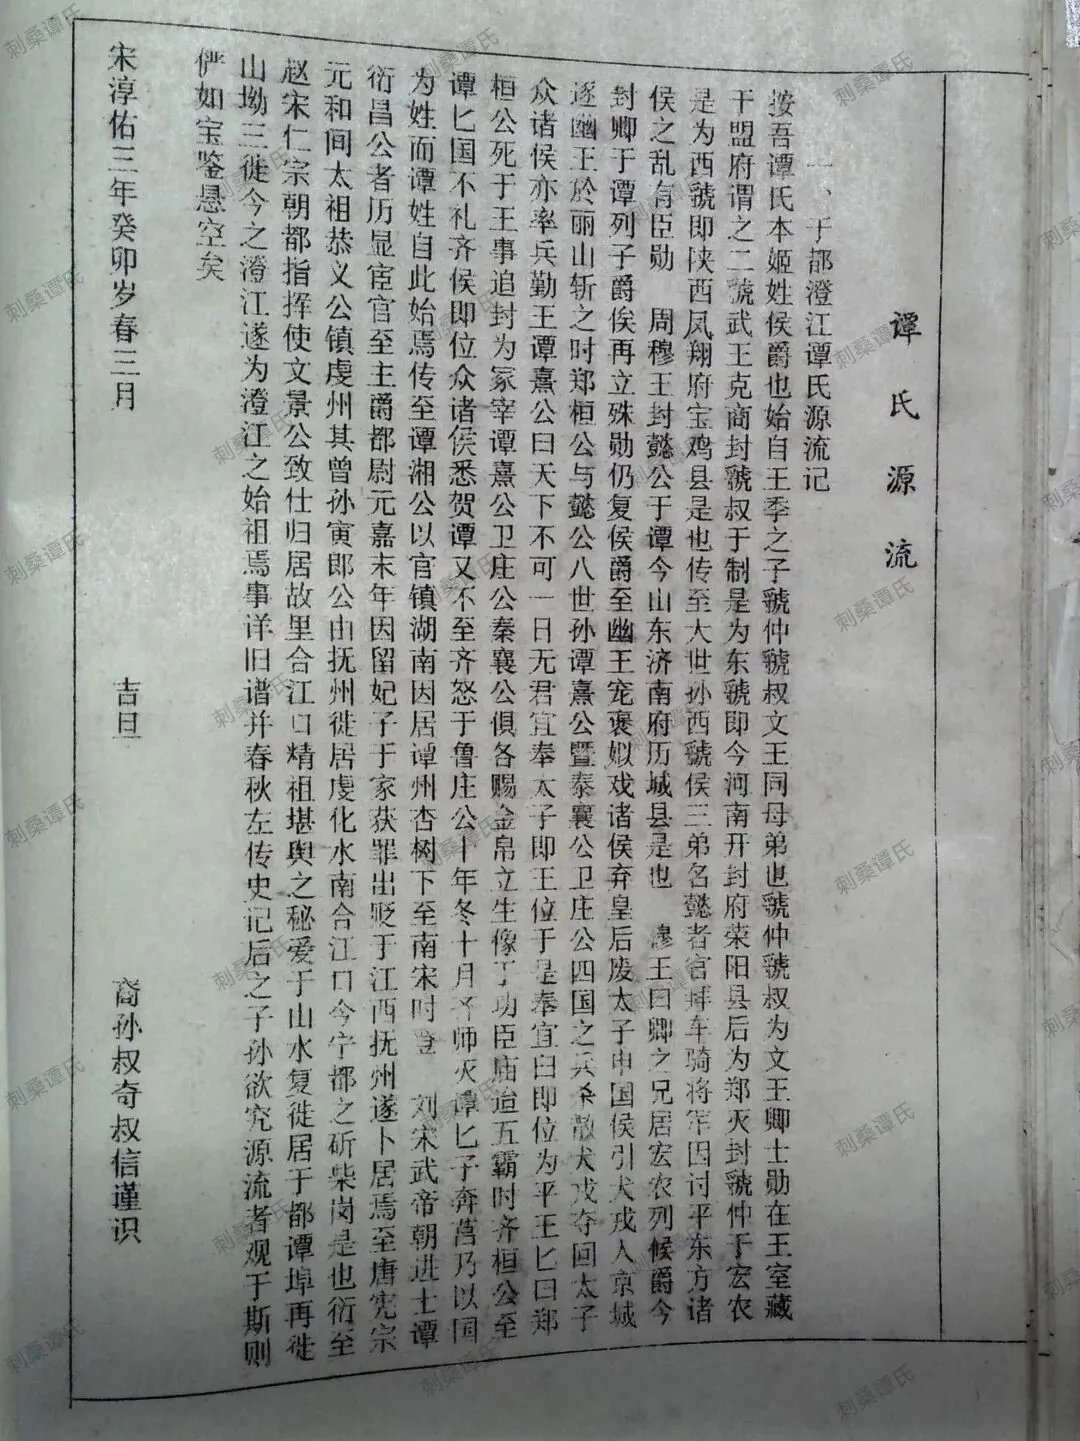 谭氏源流
一、于都澄江谭氏源流记
按吾谭氏本姬姓侯爵也始自王季之子虢仲虢叔文王同母弟也虢仲虢叔为文王卿士勋在王室藏
于盟府谓之二虢武王克商封虢叔于制是为东虢即今河南开封府荣阳县后为郑灭封虢仲于宏农
是为西虢即陕西凤翔府宝鸡县是也传至大世孙西虢侯三弟名懿者官 车骑将军因讨平东方诸
侯之乱有臣勋 周穆王封懿公于谭今山东济南府历城县是也 穆王曰卿之兄居宏农列候爵今
封卿于谭列子爵俟再立殊勋仍复侯爵至幽王宠褒姒戏诸侯弃皇后废太子申国侯引犬戎人京城
逐幽王於丽山斩之时郑桓公与懿公八世孙谭熹公暨秦襄公卫庄公四国之兵杀散犬戎夺回太子
众诸侯亦率兵勤王谭熹公曰天下不可一日无君宜奉太子即王位于是奉宜臼即位为平王匕曰郑
桓公死于王事追封为冢宰谭熹公卫庄公秦襄公俱各赐金帛立生像于功臣庙迨五霸时齐桓公至
谭匕国不礼齐侯即位众诸侯悉贺谭又不至齐怒于鲁庄公十年冬十月齐师灭谭匕子奔莒乃以国
为姓而谭姓自此始焉传至谭湘公以官镇湖南因居谭州杏树下至南宋时登 刘宋武帝朝进士谭
衍昌公者历显宦官至主爵都尉元嘉末年因留妃子于家获罪出贬于江西抚州遂卜居焉至唐宪宗
元和间太祖恭义公镇虔州其曾孙寅郎公由抚州徙居虔化水南合江口今宁都之斫柴岗是也衍至
赵宋仁宗朝都指挥使文景公致仕归居故里合江口精祖堪舆之秘爱于山水复徙居于都谭埠再徙
山坳三徙今之澄江遂为澄江之始祖焉事详旧谱并春秋左传史记后之子孙欲究源流者观于斯则
俨如宝鉴悬空矣
宋淳佑三年癸卯岁春三月 吉旦 裔孙叔奇叔信谨识
刺桑谭氏